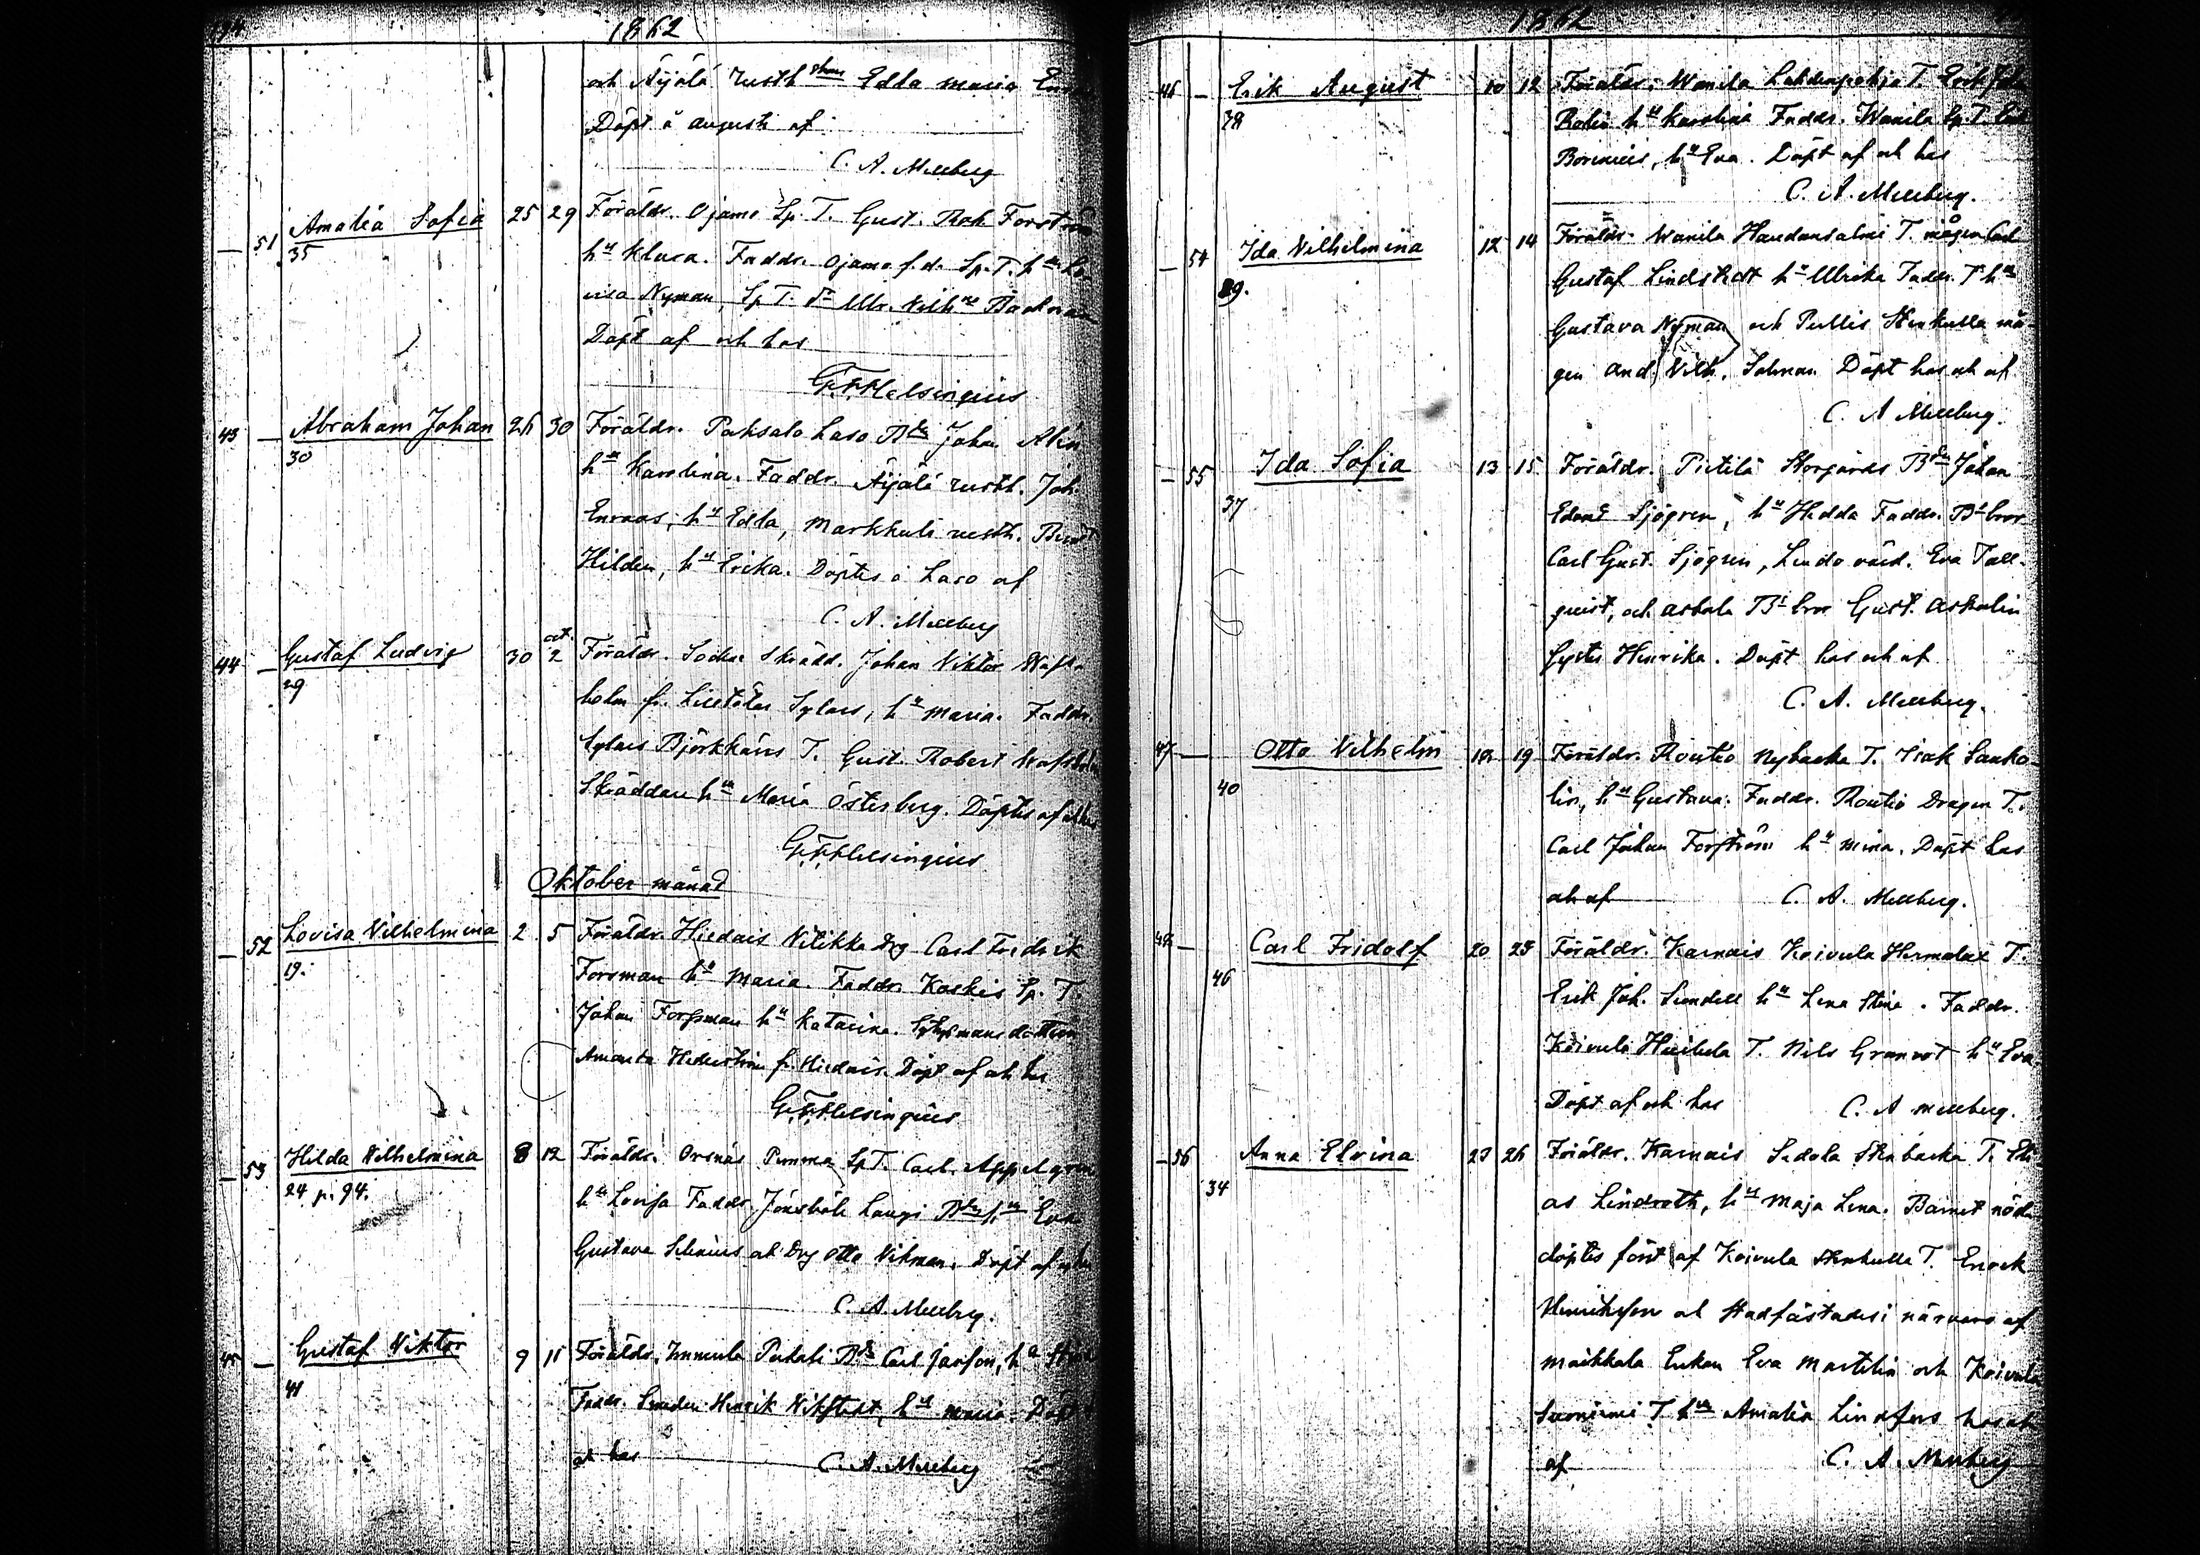 1862
och Äijälä rusth. Edla Maria
Döpt å Augusti af
C. A. Mellberg
51 Amalia Sofia 25 29 Föräldr. Ojamo Sp. T. Gust. Rob. Forström
35
hu Klara. Faddr. Ojamo f.d. Sp. T. hu Lo-
visa Nyman, Sp T. Ulr. Vilh. Backman
Döpt af och hos
G. F. Helsingius
43 Abraham Johan 26 30 Föräldr. Paksalo Laso Johan Alin
30
hu Karolina. Faddr. Äijälä rusth. Joh.
Enroos, hu Edla, Markkula rusth.
Hilden, hu Erika. Döptes å Laso af
C. A. Mellberg
44 Gustaf Ludvig 30 oct. 2 Föräldr. Sockne Skrädd. Johan Viktor Waf-
29
holm fr. Lilltötar Sylars, hu Maria. Faddr.
Sylars Björkkärrs T. Gust. Robert Wafholm
Skräddare hu Maria Österberg. Döptes af
G. F. Helsingius
Oktober månad
52 Lovisa Vilhelmina 2 5 Föräldr. Hiedais Nilikka Drg Carl Fredrik
19.
Forsman hu Maria. Faddr. Koskis Sp. T.
Johan Forssman hu Katarina.
Amanta fr. Hiedais. Döpt af och hos
G. F. Helsingius
53 Hilda Vilhelmina 8 12 Föräldr. Orsnäs Pumma Sp T. Carl Appelgren
24 p. 94.
hu Lovisa Faddr. Jönsböle Laugi Eva
Gustava Selenius och Drg Otto Vikman. Döpt af
C. A. Mellberg.
45 Gustaf Viktor 9 11 Föräldr. Immula Carl Jansson, hu
41
Faddr. Smeden Henrik Vikstedt, hu Maria. Döpt
och hos C. A. Mellberg
1862
46 Erik August 10 12 Föräldr. Wanila Lahdenpohja T. Erik
38
hu Karolina Faddr. Wanila Sp. T.
Borenius, hu Eva. Döpt af och hos
C. A. Mellberg.
54 Ida Vilhelmina 12 14 Föräldr. Wanila Haudansalmi T. mågen Carl
29.
Gustaf Lindstedt hu Ulrika Faddr. T hu
Gustava Nyman och Pullis Stenkulla må-
gen And. Vilh. Salman Döpt hos och af
C. A Mellberg.
55 Ida Sofia 13 15 Föräldr. Pietilä Storgårds Johan
37
Edvard Sjögren, hu Hedda Faddr. Bd bror
Carl Gust. Sjögren, Lindo värd. Eva Tall-
quist, och Asbola Bd bror Gust. Askolin
syster Henrika. Döpt hos och af
C. A. Mellberg.
47 Otto Vilhelm 18 19 Föräldr. Routio Nybacka T. Isak Sanko-
40
lin, hu Gustava. Faddr. Routio Dragon T.
Carl Johan Forsström hu Mina. Döpt hos
och af C. A. Mellberg.
48 Carl Fridolf 20 25 Föräldr. Karnais Koivula Hermalax T.
46
Erik Joh. Sundell hu Lena Stina. Faddr.
Koivula Huihula T. Nils Granrot hu Eva
Döpt af och hos C. A Mellberg.
56 Anna Elvina 23 26 Föräldr. Karnais Sedola Stenbacka T. Eli-
34
as Lindroth, hu Maja Lena. Barnet nöd-
döptes först af Koivula Stenkulla T. Enock
Henriksson och stadfästades i närvaro af
Maikkala Enkan Eva Martelin och Koivula
T hu Amalia Lindfors hos och
af C. A. Mellberg